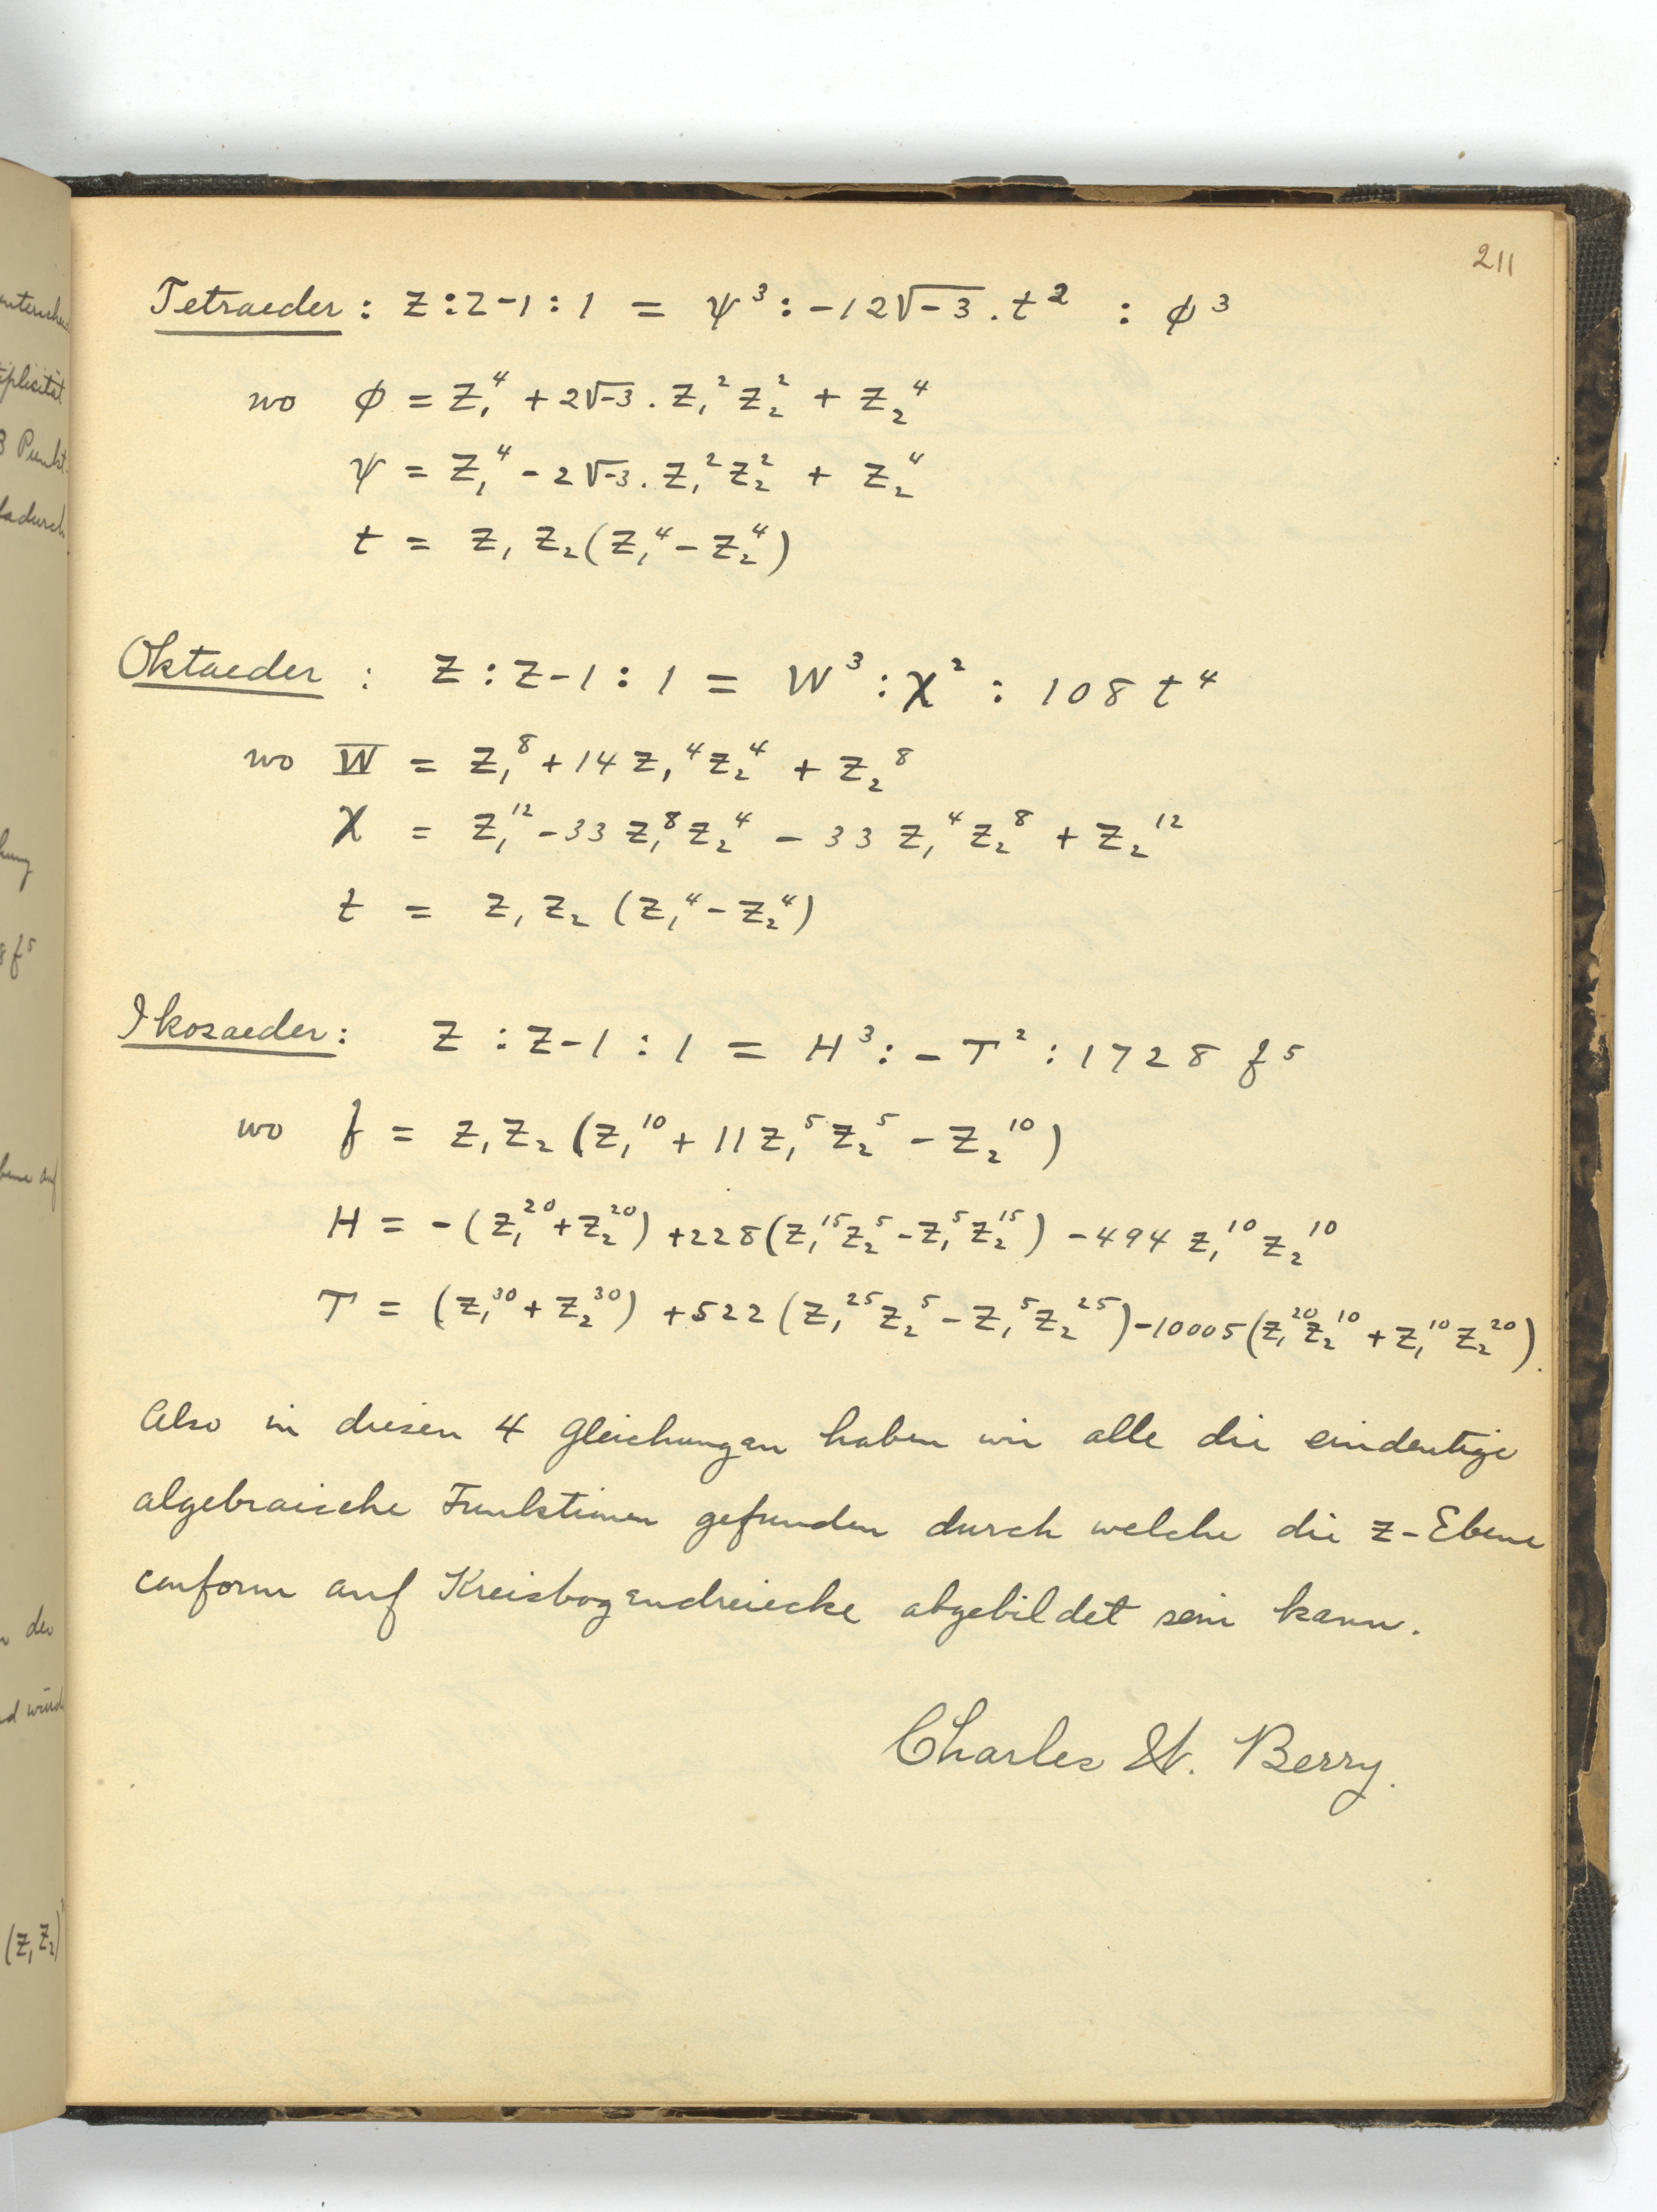 211
Tetraeder : Z : Z-1 : 1 = ψ³ : -12√-3 . t² : φ³
wo φ = z₁⁴ + 2√-3 . z₁² z₂² + z₂⁴
ψ = z₁⁴ - 2√-3 . z₁² z₂² + z₂⁴
t = z₁ z₂ (z₁⁴ - z₂⁴)
Oktaeder : Z : Z-1 : 1 = W³ : χ² : 108 t⁴
wo W = z₁⁸ + 14 z₁⁴ z₂⁴ + z₂⁸
χ = z₁¹² - 33 z₁⁸ z₂⁴ - 33 z₁⁴ z₂⁸ + z₂¹²
t = z₁ z₂ (z₁⁴ - z₂⁴)
Ikosaeder : Z : Z-1 : 1 = H³ : - T² : 1728 f⁵
wo f = z₁ z₂ (z₁¹⁰ + 11 z₁⁵ z₂⁵ - z₂¹⁰)
H = - (z₁²⁰ + z₂²⁰) + 228 (z₁¹⁵ z₂⁵ - z₁⁵ z₂¹⁵) - 494 z₁¹⁰ z₂¹⁰
T = (z₁³⁰ + z₂³⁰) + 522 (z₁²⁵ z₂⁵ - z₁⁵ z₂²⁵) - 10005 (z₁²⁰ z₂¹⁰ + z₁¹⁰ z₂²⁰).
Also in diesen 4 Gleichungen haben wir alle die eindeutige
algebraische Funktionen gefunden durch welche die z-Ebene
conform auf Kreisbogendreiecke abgebildet sein kann.
Charles W. Berry.
plicität
3 Punkt
dadurch
f⁵
der
(z₁ z₂)